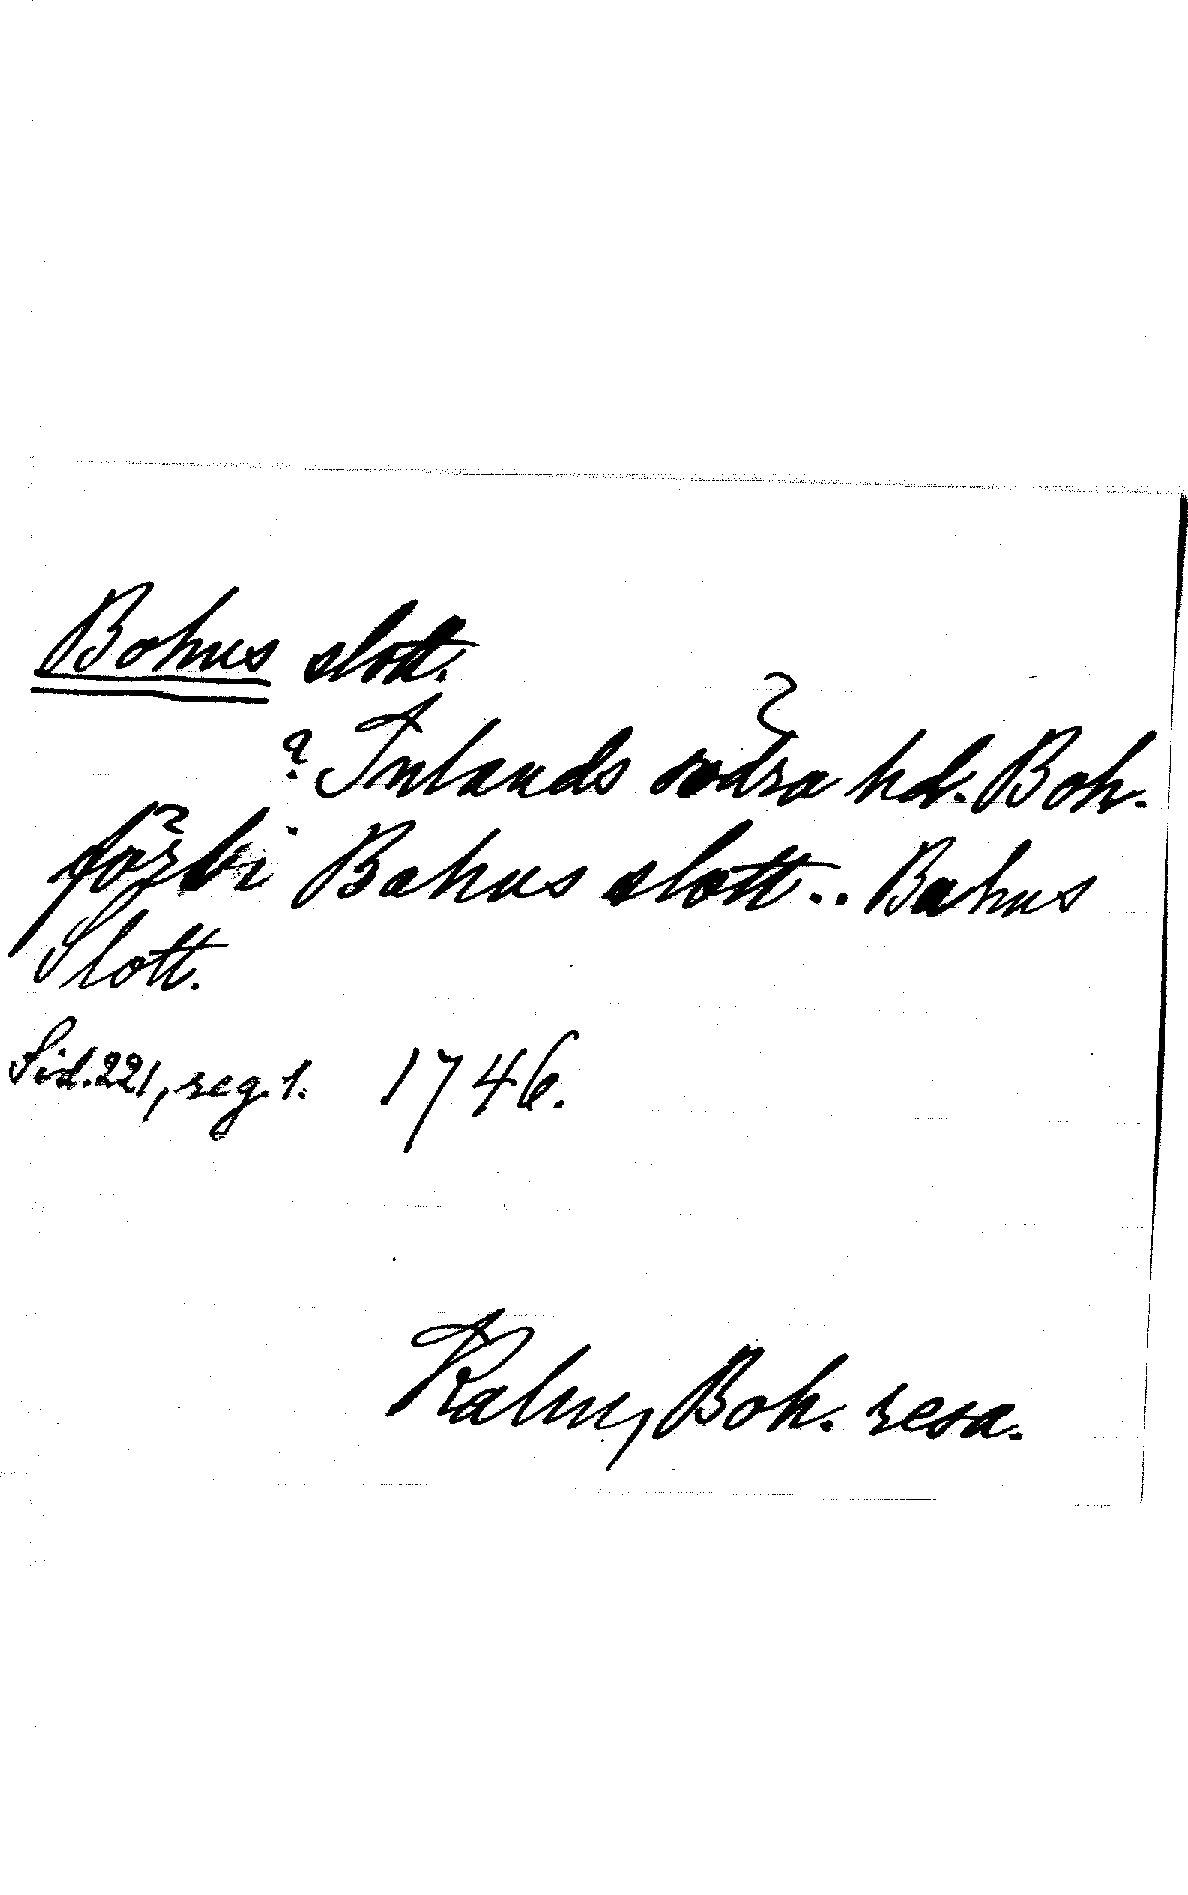 Bohus slott.
? Inlands södra hd. Boh.
förbi Bahus slott.. Bahus
Slott.
Sid. 221, reg. 1. 1746.
Kalm, Boh. resa.